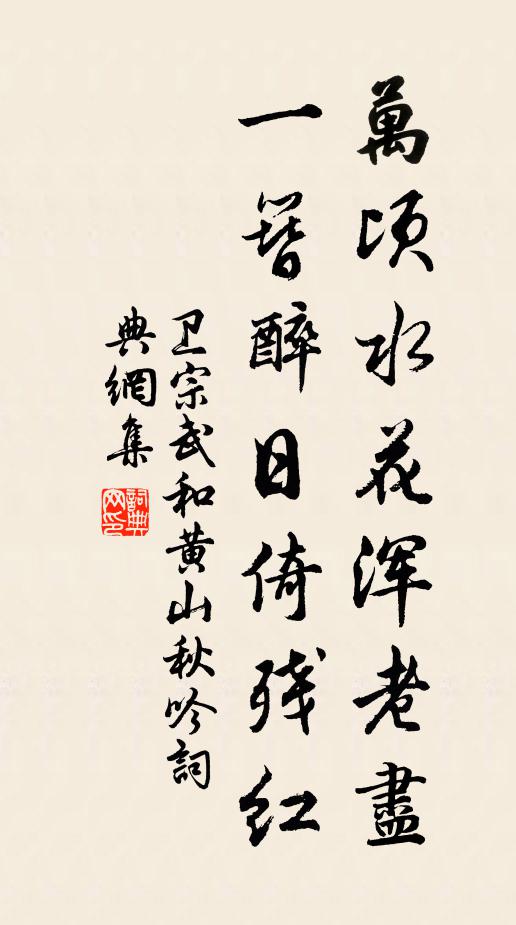 萬顷水花浑老盡
一簪醉日倚残红
卫宗武和黄山秋吟詞
典網集
詞典
网印